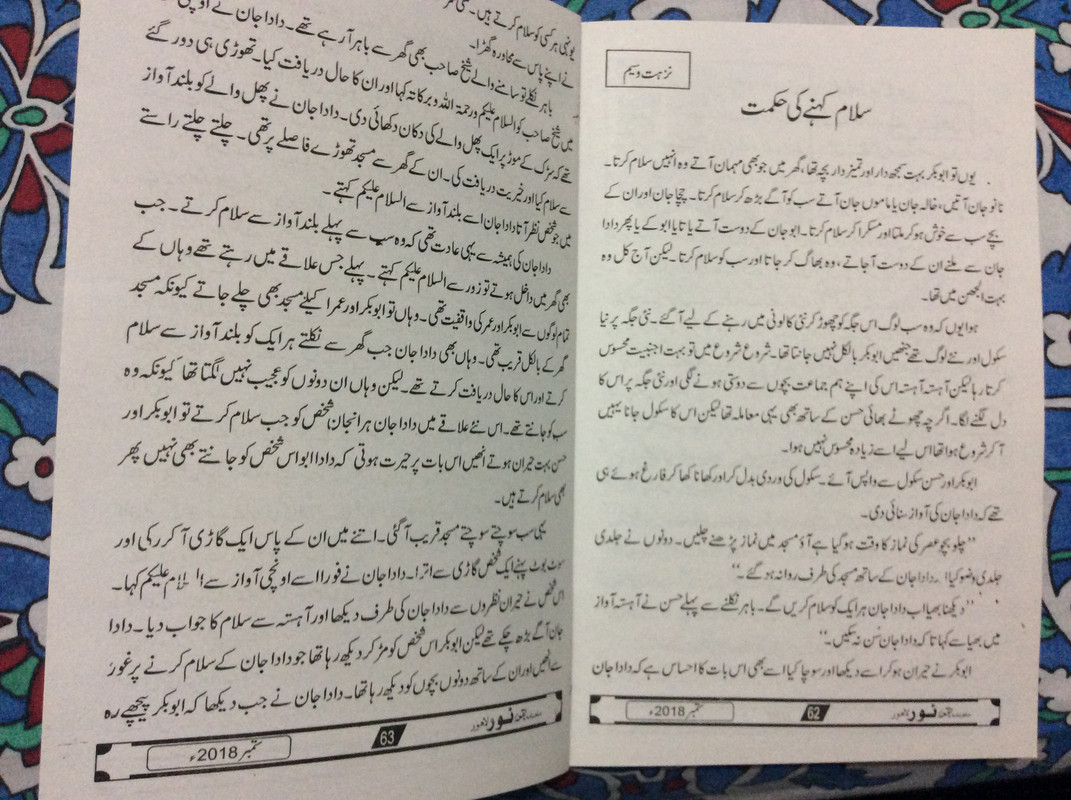 نزہت وسیم
سلام کہنے کی حکمت
یوں تو ابوبکر بہت سمجھ دار اور تمیز دار بچہ تھا، گھر میں جو بھی مہمان آتے وہ انہیں سلام کرتا۔
نانو جان آتیں، خالہ جان یا ماموں جان آتے سب کو آگے بڑھ کر سلام کرتا۔ چچا جان اور ان کے
بچے سب سے خوش ہو کر ملتا اور مسکرا کر سلام کرتا۔ ابو جان کے دوست آتے یا تایا ابو کے یا پھر دادا
جان سے ملنے ان کے دوست آجاتے، وہ بھاگ کر جاتا اور سب کو سلام کرتا۔ لیکن آج کل وہ
بہت الجھن میں تھا۔
ہوا یوں کہ وہ سب لوگ اس جگہ کو چھوڑ کر نئی کالونی میں رہنے کے لیے آگئے۔ نئی جگہ پر نیا
سکول اور نئے لوگ تھے جنھیں ابوبکر بالکل نہیں جانتا تھا۔ شروع شروع میں تو بہت اجنبیت محسوس
کرتا رہا لیکن آہستہ آہستہ اس کی اپنے ہم جماعت بچوں سے دوستی ہونے لگی اور نئی جگہ پر اس کا
دل لگنے لگا۔ اگرچہ چھوٹے بھائی حسن کے ساتھ بھی یہی معاملہ تھا لیکن اس کا سکول جانا یہیں
آکر شروع ہوا تھا اس لیے اسے زیادہ محسوس نہیں ہوا۔
ابوبکر اور حسن سکول سے واپس آئے۔ سکول کی وردی بدل کر اور کھانا کھا کر فارغ ہوئے ہی
تھے کہ دادا جان کی آواز سنائی دی۔
”چلو بچو عصر کی نماز کا وقت ہو گیا ہے آؤ مسجد میں نماز پڑھنے چلیں۔ دونوں نے جلدی
جلدی وضو کیا اور دادا جان کے ساتھ مسجد کی طرف روانہ ہو گئے۔“
”دیکھنا بھیا اب دادا جان ہر ایک کو سلام کریں گے۔ باہر نکلنے سے پہلے حسن نے آہستہ آواز
میں بھیا سے کہا تا کہ دادا جان سن نہ سکیں۔“
ابوبکر نے حیران ہو کر اسے دیکھا اور سوچا کیا اسے بھی اس بات کا احساس ہے کہ دادا جان
نور لاہور 62 ستمبر 2018ء
یونہی ہر کسی کو سلام کرتے ہیں۔
نے اپنے پاس سے محاورہ گھڑا۔
باہر نکلے تو سامنے والے شیخ صاحب بھی گھر سے باہر آ رہے تھے۔ دادا جان نے اونچی
میں شیخ صاحب کو السلام علیکم ورحمۃ اللہ وبرکاتہ کہا اور ان کا حال دریافت کیا۔ تھوڑی ہی دور گئے
تھے کہ سڑک کے موڑ پر ایک پھل والے کی دکان دکھائی دی۔ دادا جان نے پھل والے کو بلند آواز
سے سلام کیا اور خیریت دریافت کی۔ ان کے گھر سے مسجد تھوڑے فاصلے پر تھی۔ چلتے چلتے راستے
میں جو شخص نظر آتا دادا جان اسے بلند آواز سے السلام علیکم کہتے۔
دادا جان کی ہمیشہ سے یہی عادت تھی کہ وہ سب سے پہلے بلند آواز سے سلام کرتے۔ جب
بھی گھر میں داخل ہوتے تو زور سے السلام علیکم کہتے۔ پہلے جس علاقے میں رہتے تھے وہاں کے
تمام لوگوں سے ابوبکر اور عمر کی واقفیت تھی۔ وہاں تو ابوبکر اور عمر اکیلئے مسجد بھی چلے جاتے کیونکہ مسجد
گھر کے بالکل قریب تھی۔ وہاں بھی دادا جان جب گھر سے نکلتے ہر ایک کو بلند آواز سے سلام
کرتے اور اس کا حال دریافت کرتے تھے۔ لیکن وہاں ان دونوں کو عجیب نہیں لگتا تھا کیونکہ وہ
سب کو جانتے تھے۔ اس نئے علاقے میں دادا جان ہر انجان شخص کو جب سلام کرتے تو ابوبکر اور
حسن بہت حیران ہوتے انھیں اس بات پر حیرت ہوتی کہ دادا ابو اس شخص کو جانتے بھی نہیں پھر
بھی سلام کرتے ہیں۔
یہی سب سوچتے سوچتے مسجد قریب آگئی۔ اتنے میں ان کے پاس ایک گاڑی آکر رکی اور
سوٹ بوٹ پہنے ایک شخص گاڑی سے اترا۔ دادا جان نے فورا اسے اونچی آواز سے السلام علیکم کہا۔
اس شخص نے حیران نظروں سے دادا جان کی طرف دیکھا اور آہستہ سے سلام کا جواب دیا۔ دادا
جان آگے بڑھ چکے تھے لیکن ابوبکر اس شخص کو مڑ کر دیکھ رہا تھا جو دادا جان کے سلام کرنے پر غور
سے انھیں اور ان کے ساتھ دونوں بچوں کو دیکھ رہا تھا۔ دادا جان نے جب دیکھا کہ ابوبکر پیچھے رہ
نور لاہور 63 ستمبر 2018ء